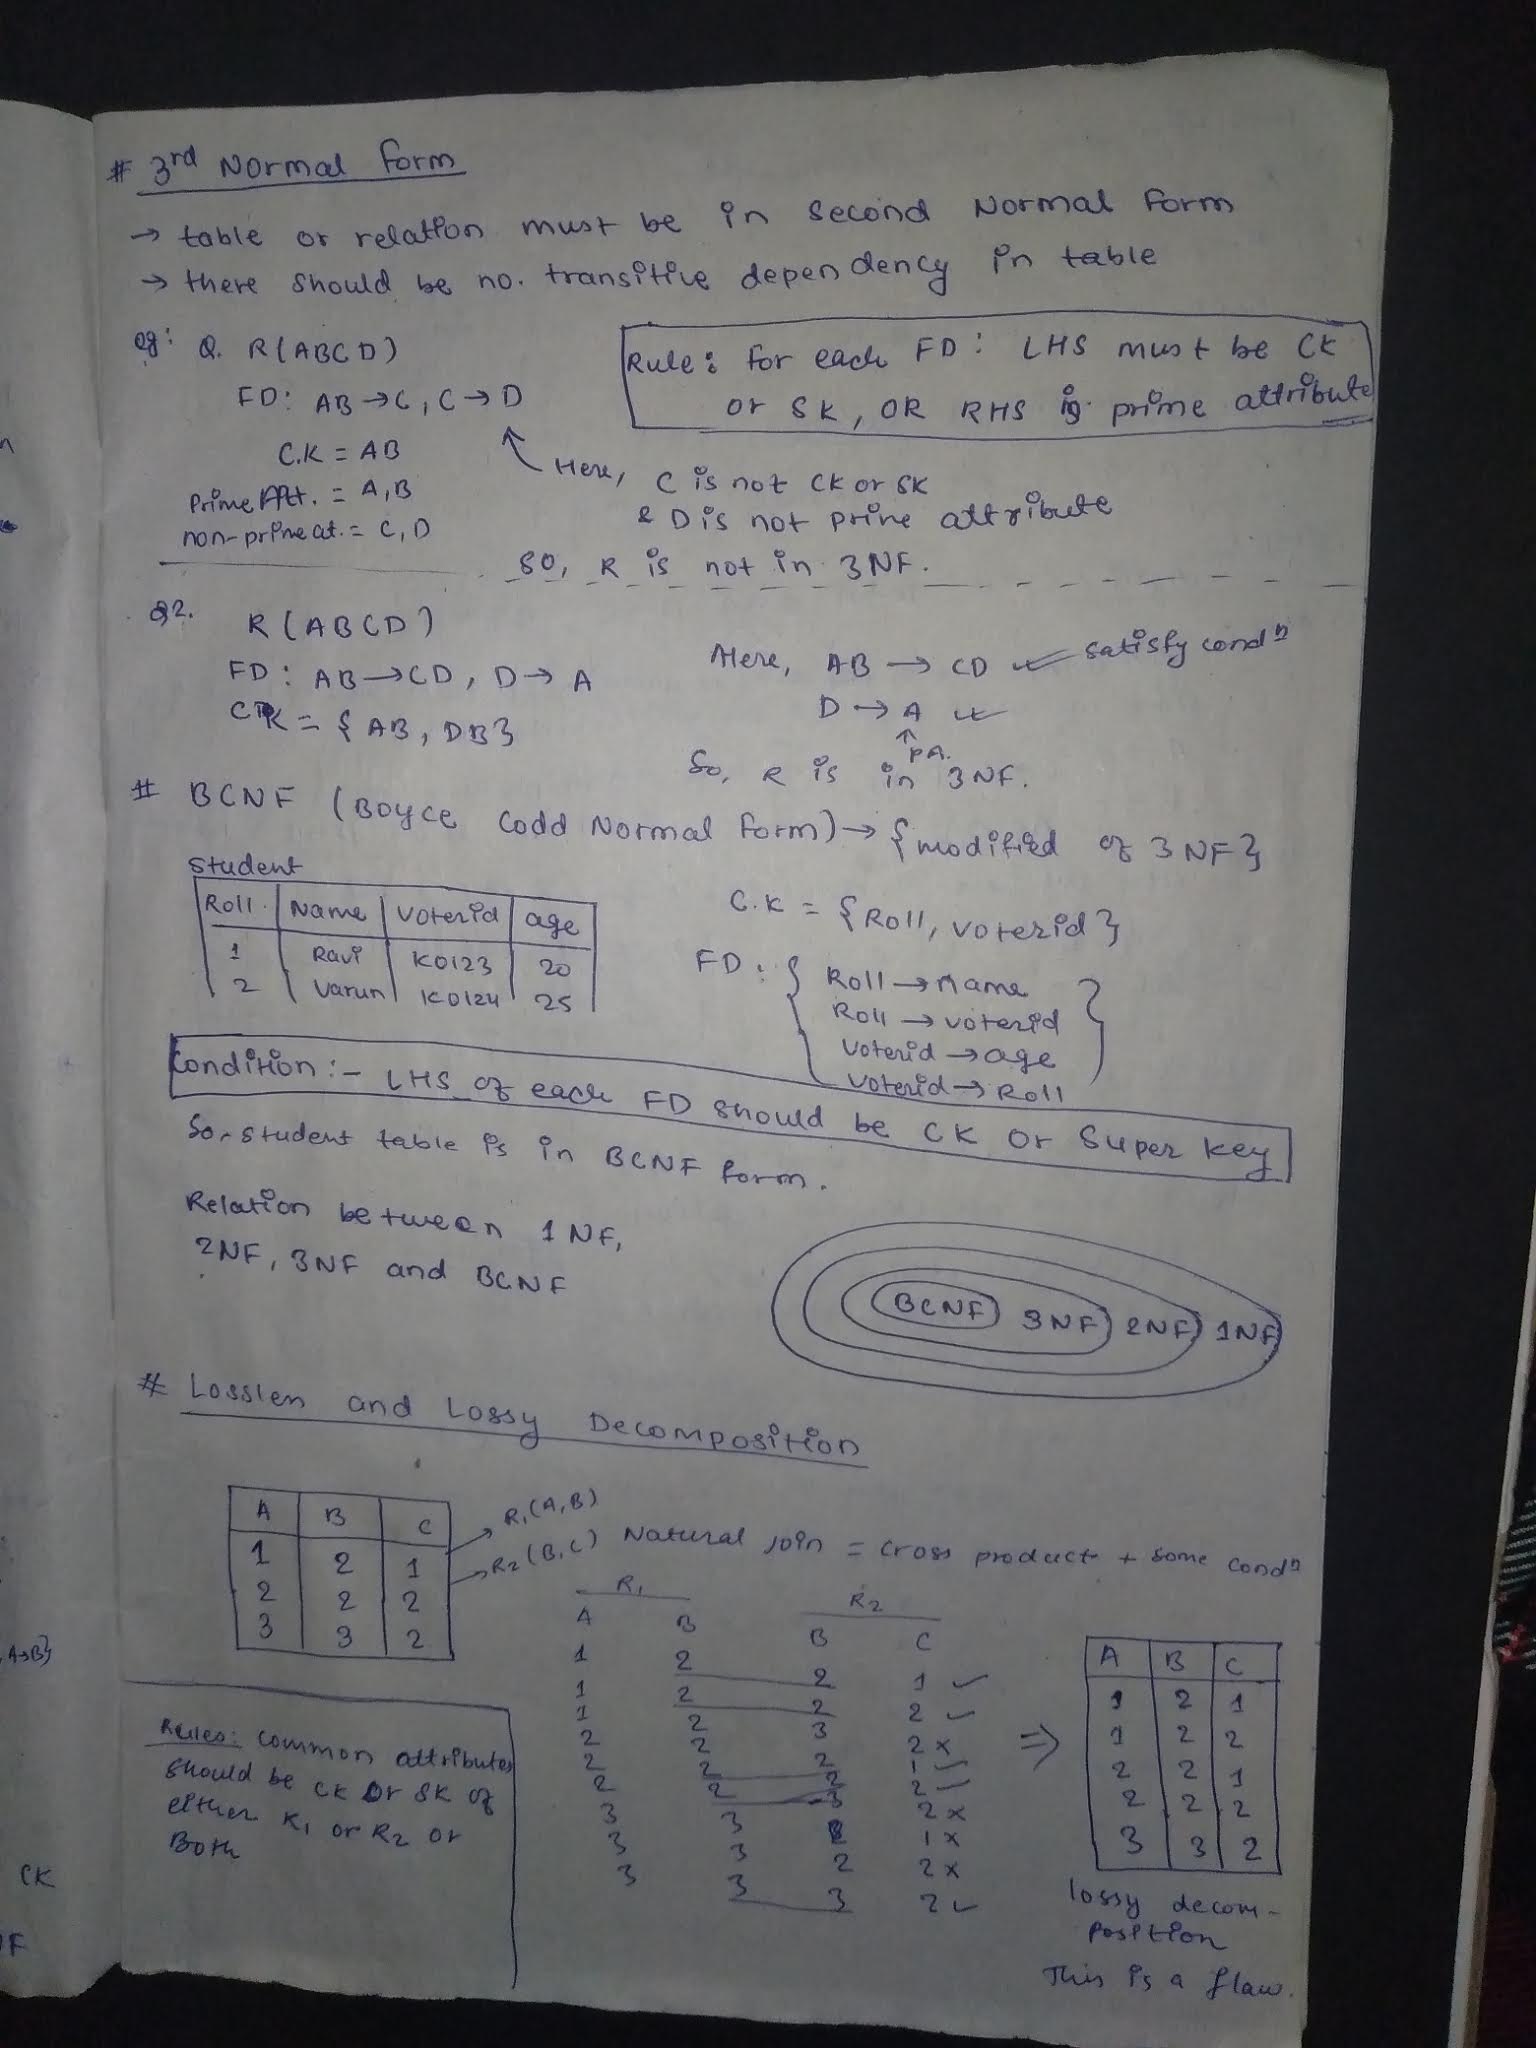 # 3rd Normal form
→ table or relation must be in second Normal Form
→ there should be no. transitive dependency in table
eg: Q. R(ABCD)
FD: AB→C, C→D
C.K = AB
Prime Att. = A,B
non-prime at. = C,D
Rule: for each FD: LHS must be CK
or SK, OR RHS is prime attribute
↑ Here, C is not CK or SK
& D is not prime attribute
SO, R is not in 3NF.
Q2. R(ABCD)
FD: AB→CD, D→A
CK = {AB, DB}
Here, AB → CD ✓ satisfy condn
D → A ✓
↑
PA.
So, R is in 3NF.
# BCNF (Boyce Codd Normal Form) → {modified of 3NF}
Student
Roll Name voterid age
1 Ravi K0123 20
2 Varun K0124 25
C.K = {Roll, voterid}
FD: { Roll → name
Roll → voterid
voterid → age
voterid → Roll }
Condition :- LHS of each FD should be CK or Super key
So, student table is in BCNF form.
Relation between 1NF,
2NF, 3NF and BCNF
BCNF 3NF 2NF 1NF
# Losslen and Lossy Decomposition
A B C
1 2 1
2 2 2
3 3 2
R1(A,B)
R2(B,C) Natural join = cross product + some condn
R1 R2
A B B C
1 2 2 1 ✓
1 2 2 2 ✓
1 2 3 2 ×
2 2 2 1 ✓
2 2 2 2 ✓
2 2 3 2 ×
3 3 1 ×
3 3 2 2 ×
3 3 3 2 ✓
⇒
A B C
1 2 1
1 2 2
2 2 1
2 2 2
3 3 2
lossy decom-
position
This is a flaw.
Rules: common attributes
should be CK or SK of
either R1 or R2 or
Both
A→B}
CK